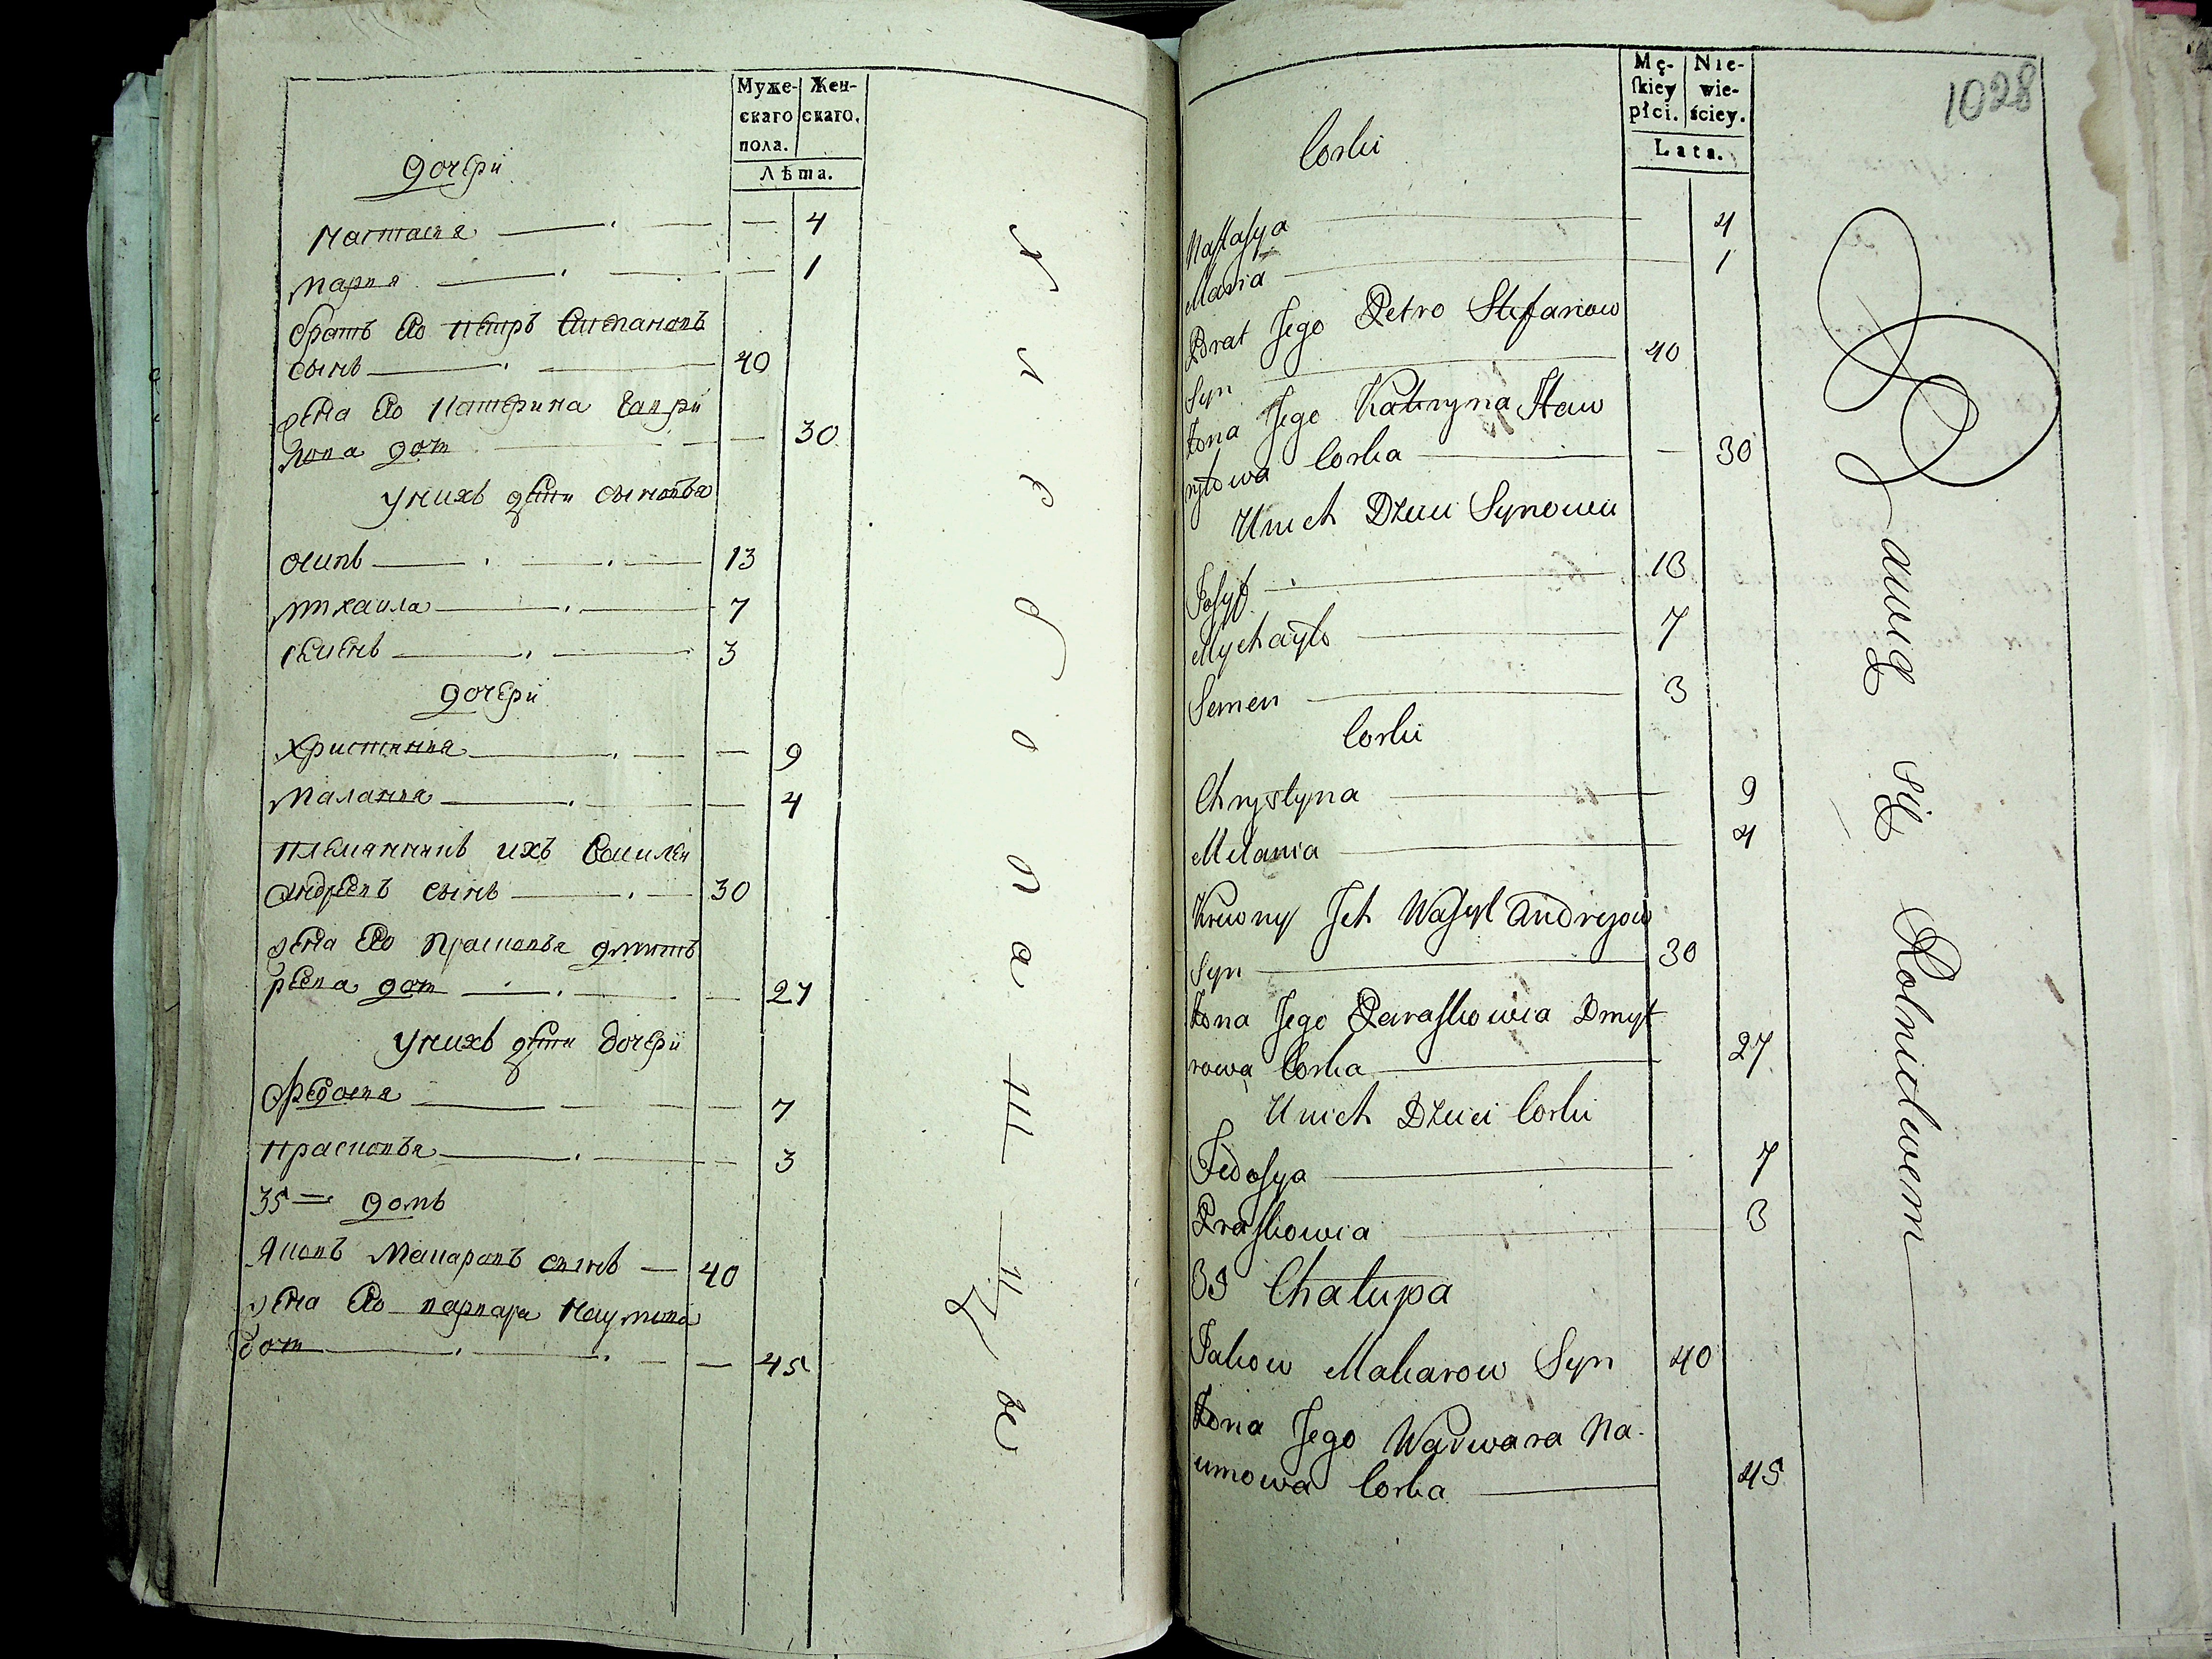 Муже-
скаго
пола.
Жен-
скаго.
Лѣта.
дочери
Настасия 4
Мария 1
братъ Его петръ Степановъ
сынъ 40
жена Его Катерина Гаври
лова доч 30
у нихъ дети сыновья
осипъ 13
михаила 7
семенъ 3
дочери
христиния 9
Малания 4
племянникъ ихъ Василей
андреевъ сынъ 30
жена Его прасковья дмит
рева доч 27
у нихъ дети дочери
федосия 7
прасковья 3
35 = домъ
Яковъ Макаровъ сынъ 40
жена Его варвара Наумова
доч 45
1028
Mę-
skiey
płci.
Nie-
wie-
ściey.
Lata.
Corki
Nastasya 4
Maria 1
Brat Jego Petro Stefanow
Syn 40
Żona Jego Kateryna Haw
ryłowa Corka 30
U nich Dzieci Synowie
Josyf 13
Mychayło 7
Semen 3
Corki
Chrystyna 9
Melania 4
Krewny Ich Wasyl Andrejow
Syn 30
Żona Jego Paraskowia Dmyt
rowa Corka 27
U nich Dzieci Corki
Fedosya 7
Praskowia 3
35 Chałupa
Jakow Makarow Syn 40
Żona Jego Warwara Na-
umowa Corka 45
Bawią się Rolnictwem